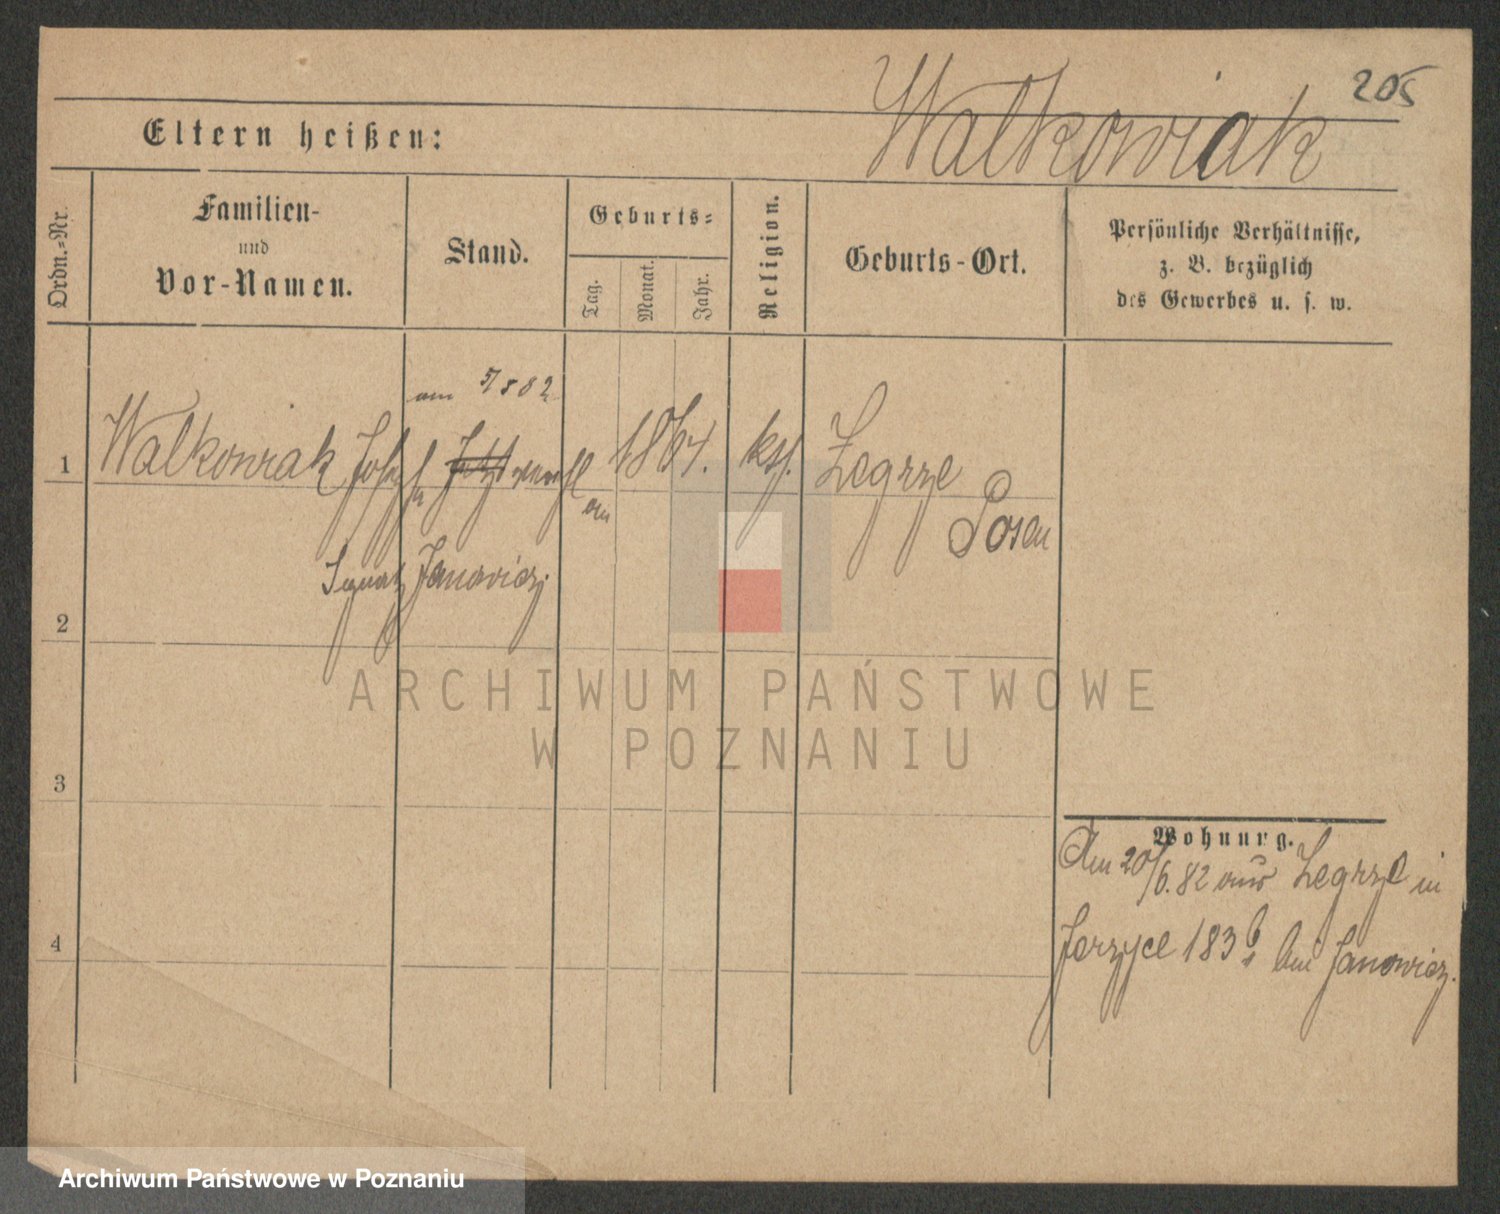 205
Walkowiak
Eltern heißen:
Ordn.-Nr.
Familien-
und
Vor-Namen.
Stand.
Geburts-
Tag.
Monat.
Jahr.
Religion.
Geburts-Ort.
Persönliche Verhältnisse,
z. B. bezüglich
des Gewerbes u. s. w.
am 5/8 82
1 Walkowiak Josepha verehl 1864. kth. Zegrze
an Posen
Ignatz Janowicz
2
3
4
Wohnung.
Am 20/6. 82 aus Zegrze in
Jerzyce 183 bei Janowicz.
ARCHIWUM PAŃSTWOWE
W POZNANIU
Archiwum Państwowe w Poznaniu